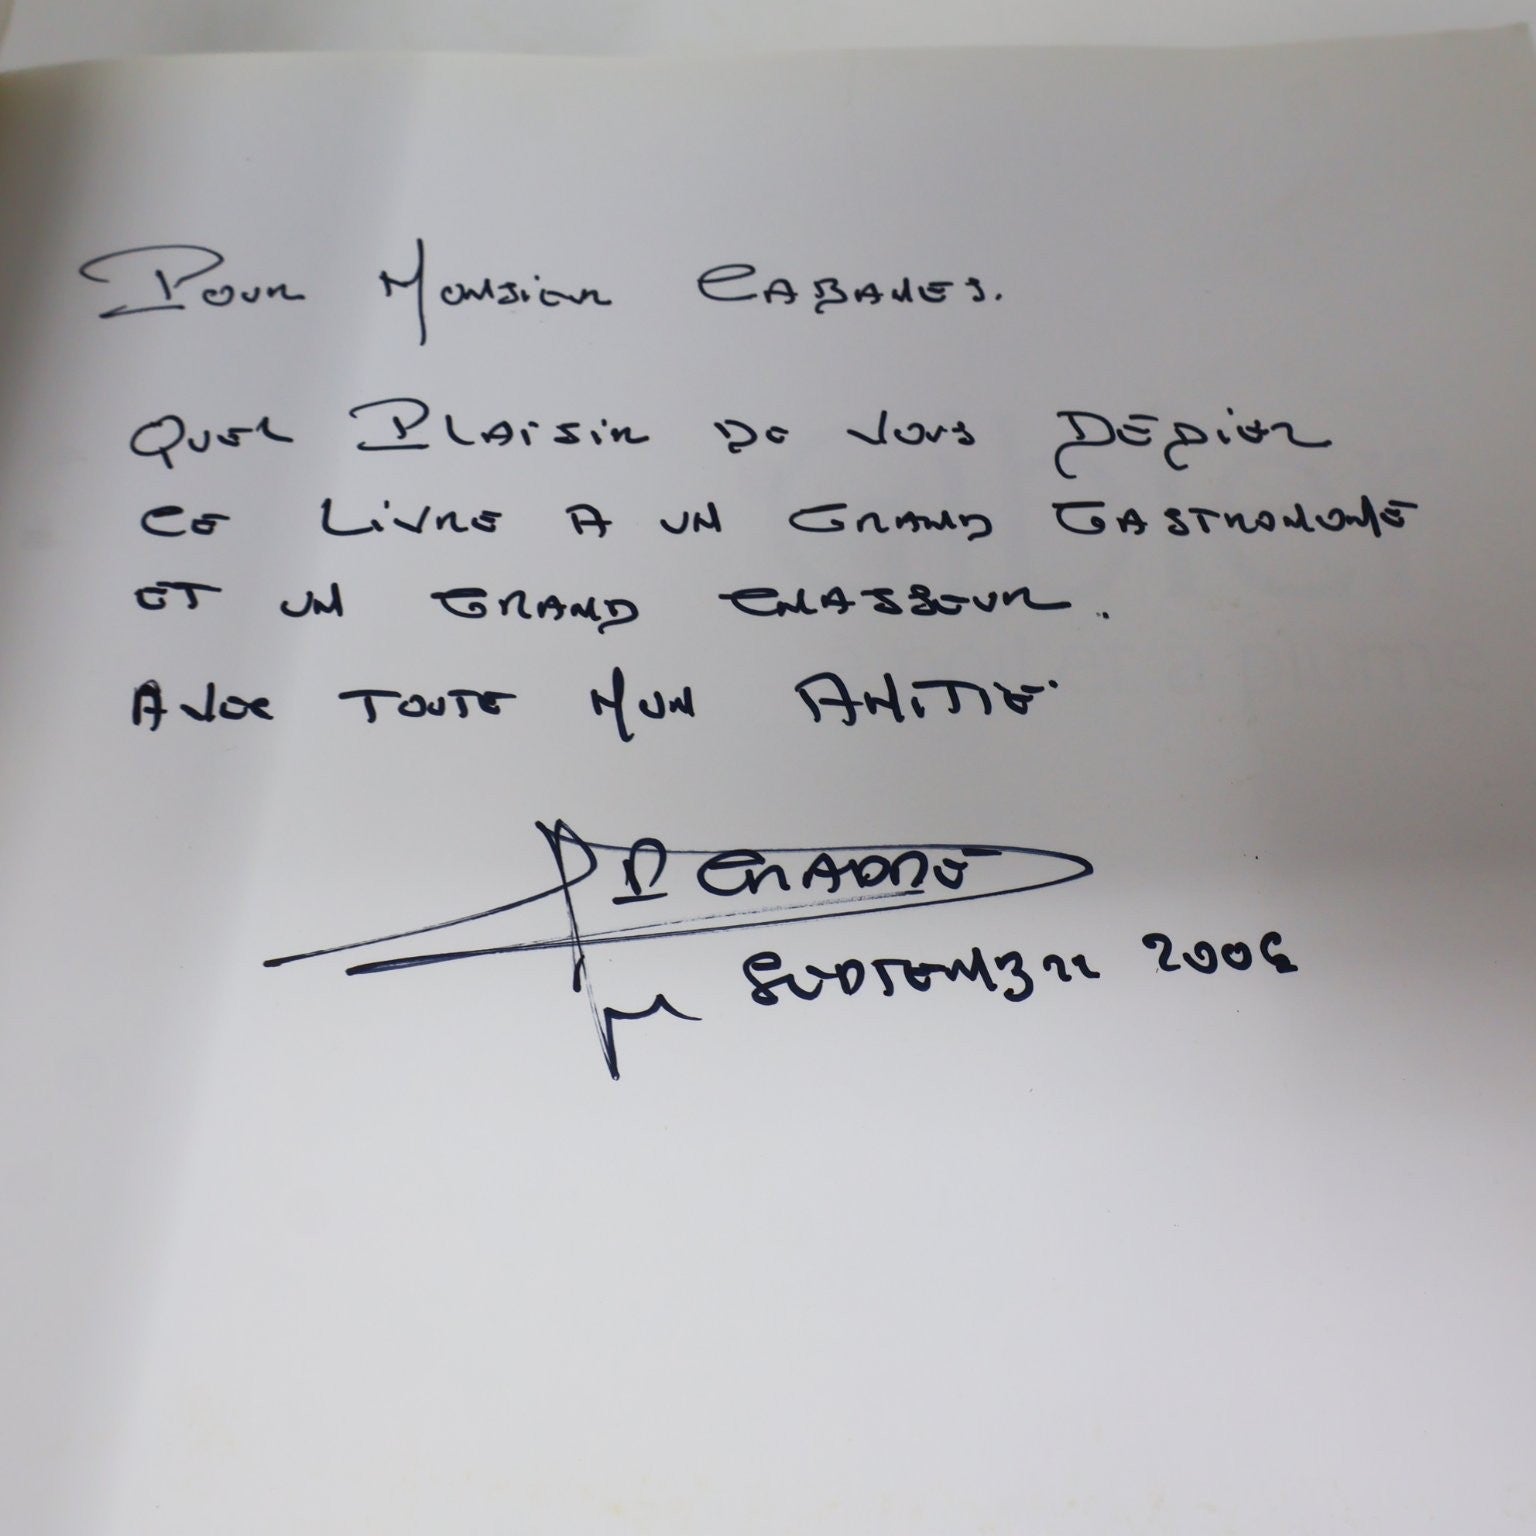 Pour Monsieur CABANES.
QUEL PLAiSiR DE VOUS DÉDiER
CE LiVRE A UN GRAND GASTRONOME
ET UN GRAND CHASSEUR.
AVEC TOUTE MON AMiTIÉ
SEPTEMBRE 2006